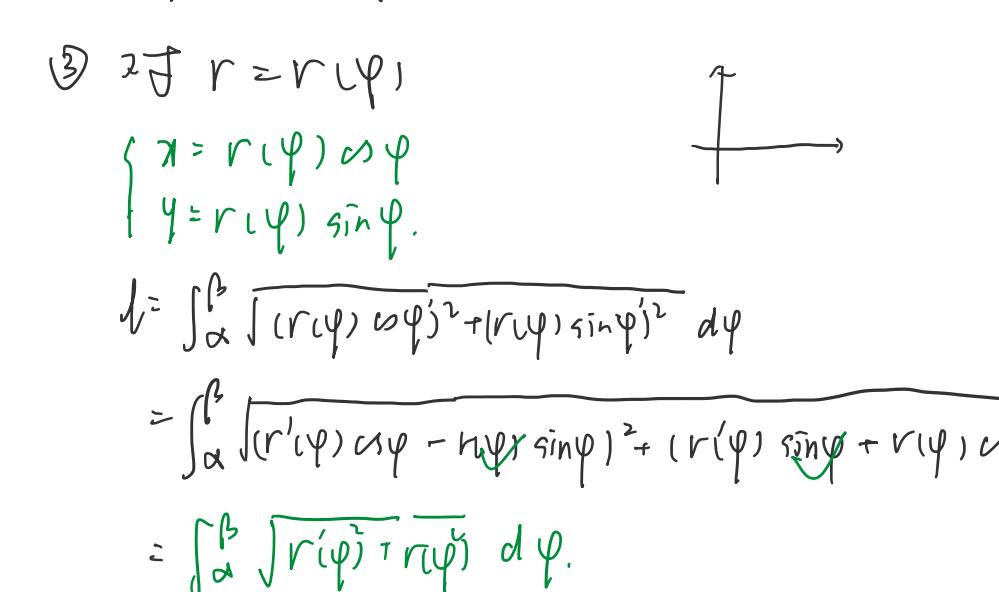 ③ 对 r = r(φ)
{ x = r(φ) cos φ
y = r(φ) sin φ.
l = ∫_α^β √((r(φ) cos φ)'² + (r(φ) sin φ)'²) dφ
= ∫_α^β √((r'(φ) cos φ - r(φ) sin φ)² + (r'(φ) sin φ + r(φ) c
= ∫_α^β √(r'(φ)² + r(φ)²) dφ.